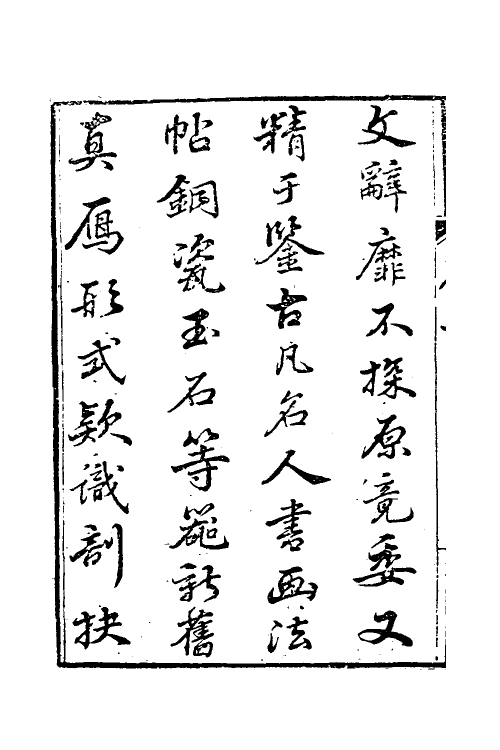 文辭靡不探原竟委又
精于鑒古凡名人書画法
帖銅瓷玉石等器新舊
真鴈形式欵識剖抉